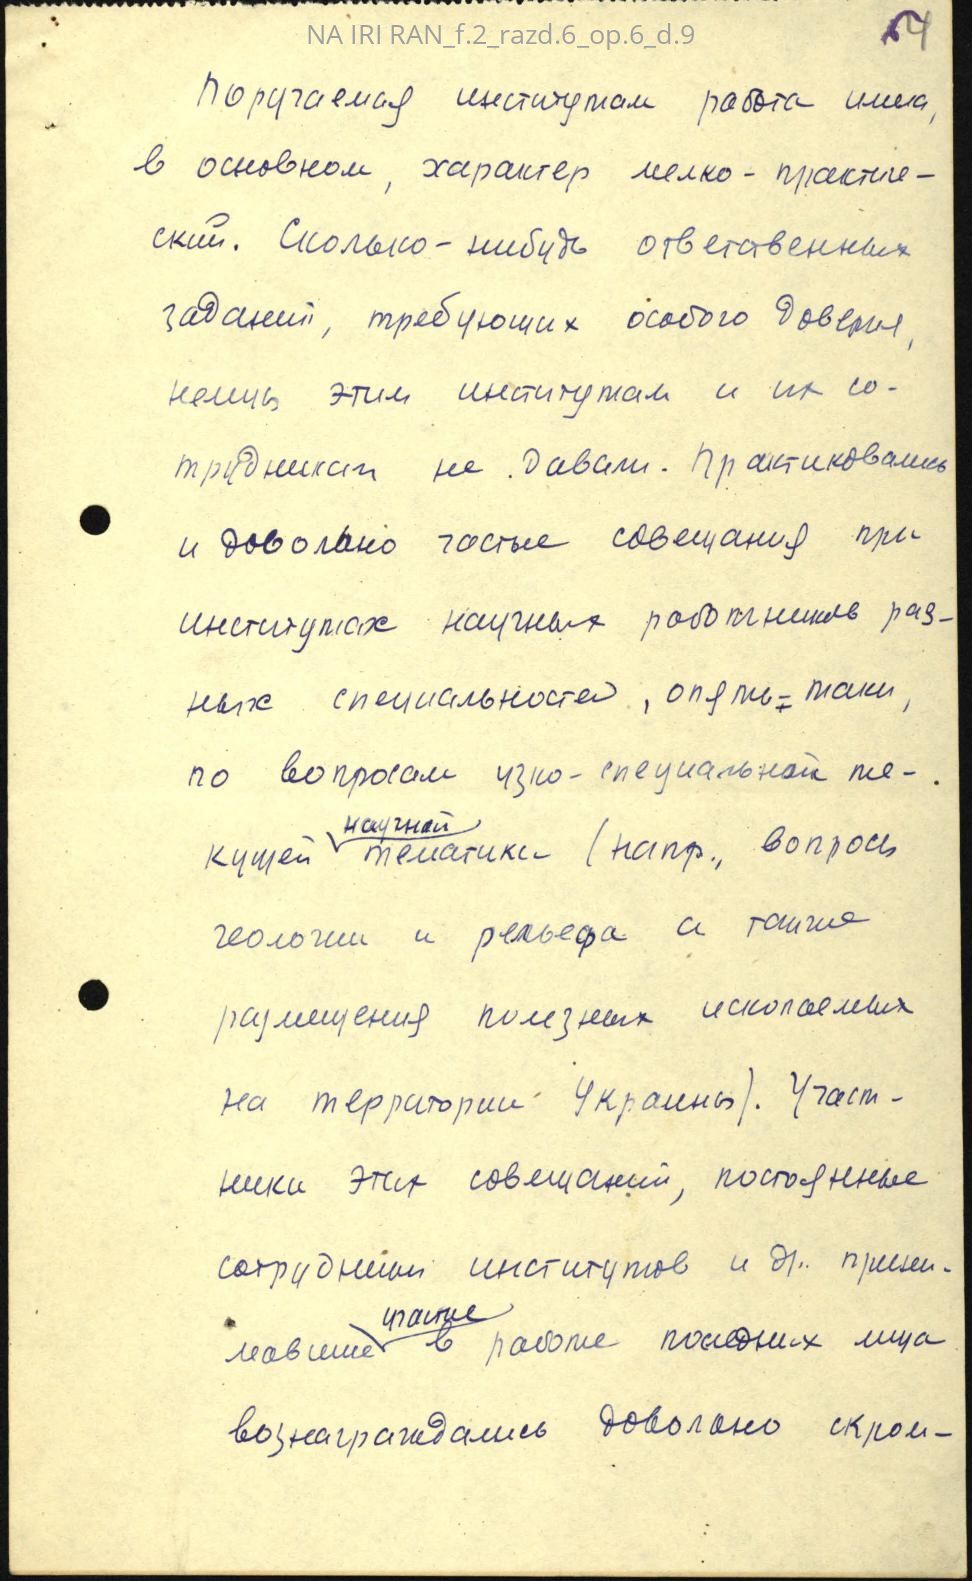 NA IRI RAN_f.2_razd.6_op.6_d.9
54
Поручаемая институтам работа имела,
в основном, характер мелко-практиче-
ский. Сколько-нибудь ответственных
заданий, требующих особого доверия,
немцы этим институтам и их со-
трудникам не давали. Практиковались
и довольно частые совещания при
институтах научных работников раз-
ных специальностей, опять-таки,
по вопросам узко-специальной те-
научной
кущей тематики (напр., вопросы
геологии и рельефа а также
размещения полезных ископаемых
на территории Украины). Участ-
ники этих совещаний, постоянные
сотрудники институтов и др. прини-
участие
мавшие в работе последних лица
вознаграждались довольно скром-